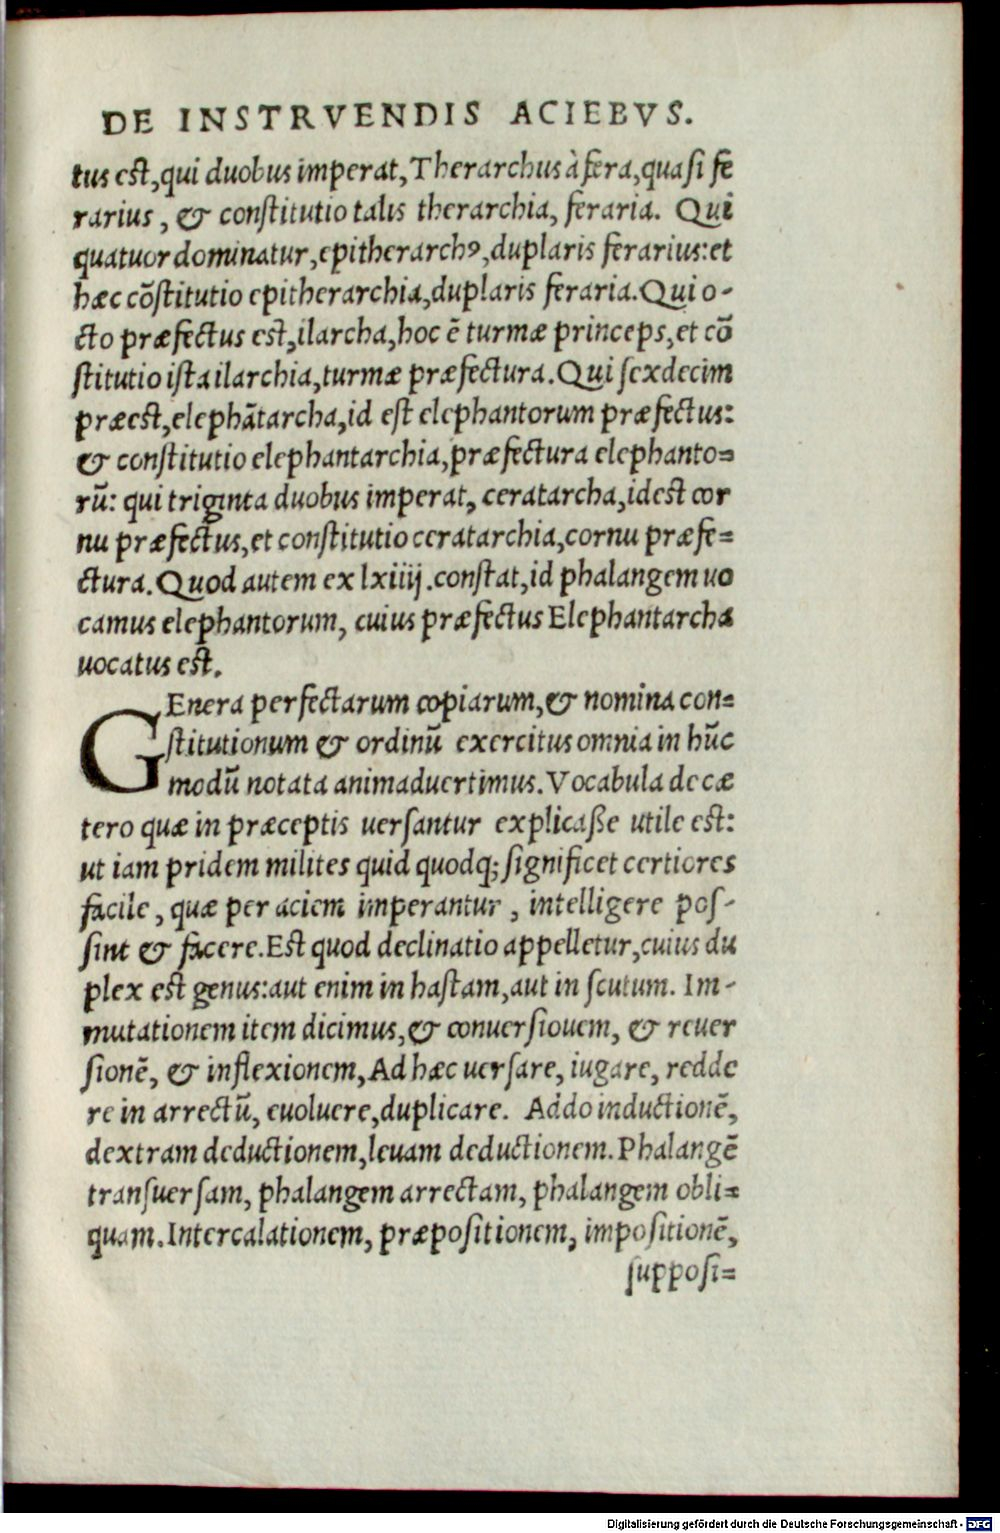 DE INSTRVENDIS ACIEBVS.
tus est,qui duobus imperat,Therarchus à fera,quasi fe
rarius, & constitutio talis therarchia, feraria. Qui
quatuor dominatur,epitherarchꝰ,duplaris ferarius:et
hæc cõstitutio epitherarchia,duplaris feraria.Qui o-
cto præfectus est,ilarcha,hoc ē turmæ princeps,et cõ
stitutio ista ilarchia,turmæ præfectura.Qui sexdecim
præest,elephãtarcha,id est elephantorum præfectus:
& constitutio elephantarchia,præfectura elephanto=
rũ: qui triginta duobus imperat, ceratarcha,idest cor
nu præfectus,et constitutio ceratarchia,cornu præfe=
ctura.Quod autem ex lxiiij.constat,id phalangem uo
camus elephantorum, cuius præfectus Elephantarcha
uocatus est.
GEnera perfectarum copiarum,& nomina con=
stitutionum & ordinũ exercitus omnia in hũc
modũ notata animaduertimus.Vocabula de cæ
tero quæ in præceptis uersantur explicaße utile est:
ut iam pridem milites quid quodq; significet certiores
facile, quæ per aciem imperantur, intelligere pos-
sint & facere.Est quod declinatio appelletur,cuius du
plex est genus:aut enim in hastam,aut in scutum. Im-
mutationem item dicimus,& conuersiouem, & reuer
sionē, & inflexionem,Ad hæc uersare, iugare, redde
re in arrectũ, euoluere,duplicare. Addo inductionē,
dextram deductionem,leuam deductionem.Phalangē
transuersam, phalangem arrectam, phalangem obli=
quam.Intercalationem, præpositionem, impositionē,
supposi=
Digitalisierung gefördert durch die Deutsche Forschungsgemeinschaft - DFG